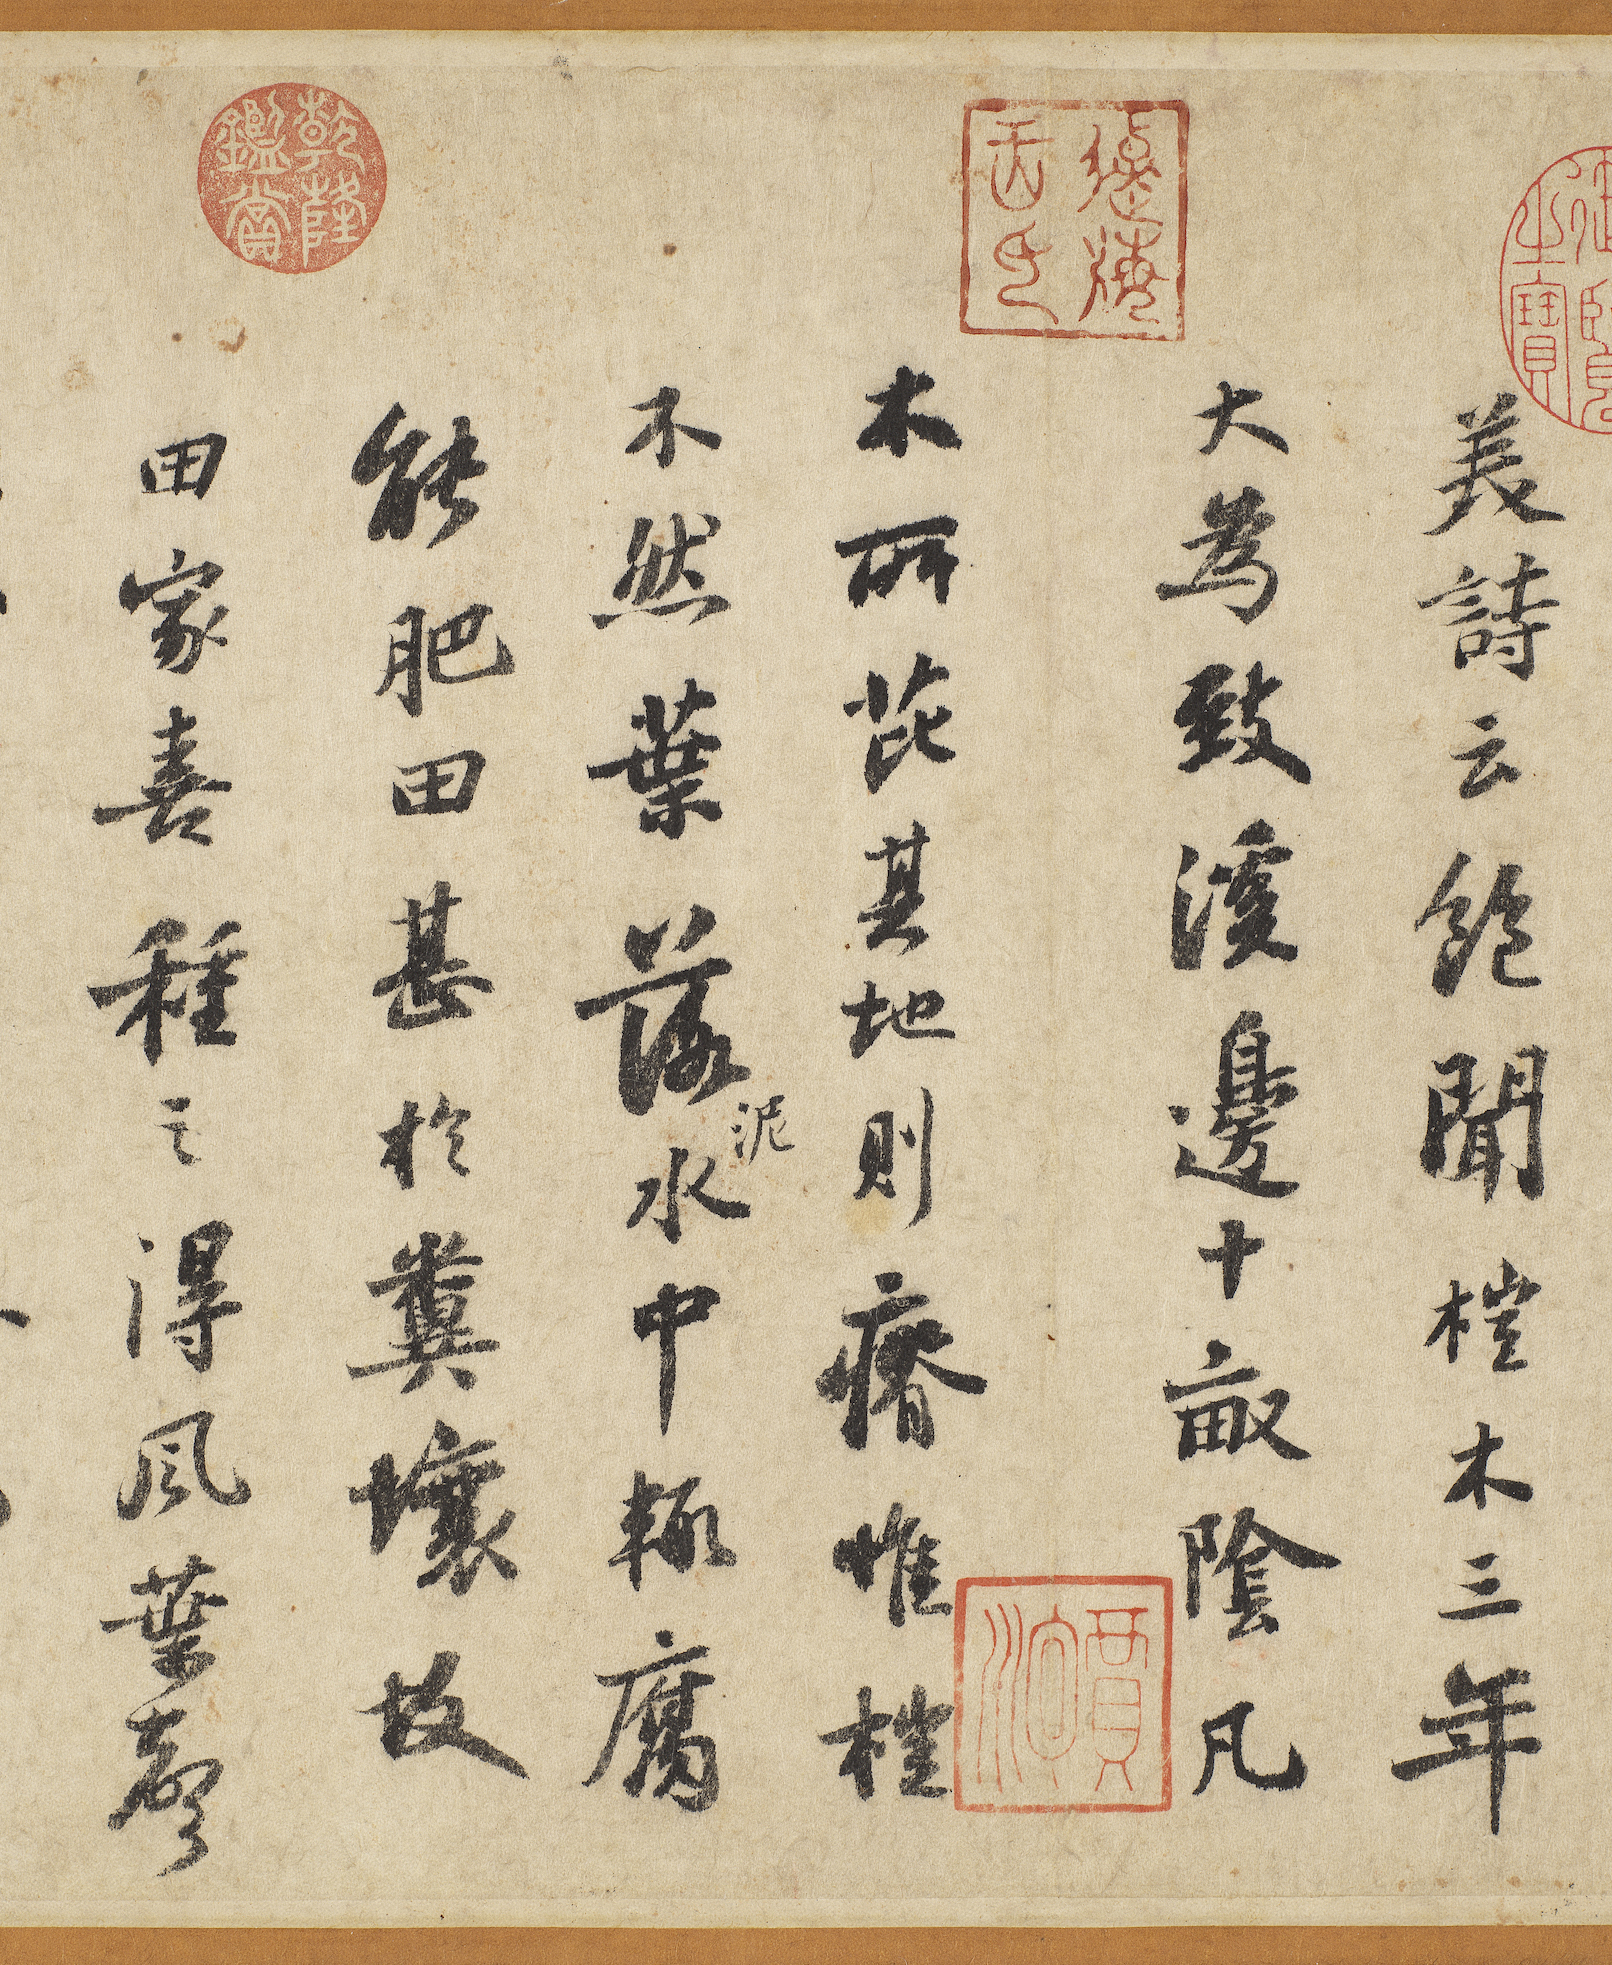 御覽之寶
美詩云飽聞榿木三年
大為致溪邊十畝陰凡
木所芘其地則瘠惟榿
不然葉落泥水中輒腐
能肥田甚於糞壤故
田家喜種之得風葉聲
乾隆鑑賞